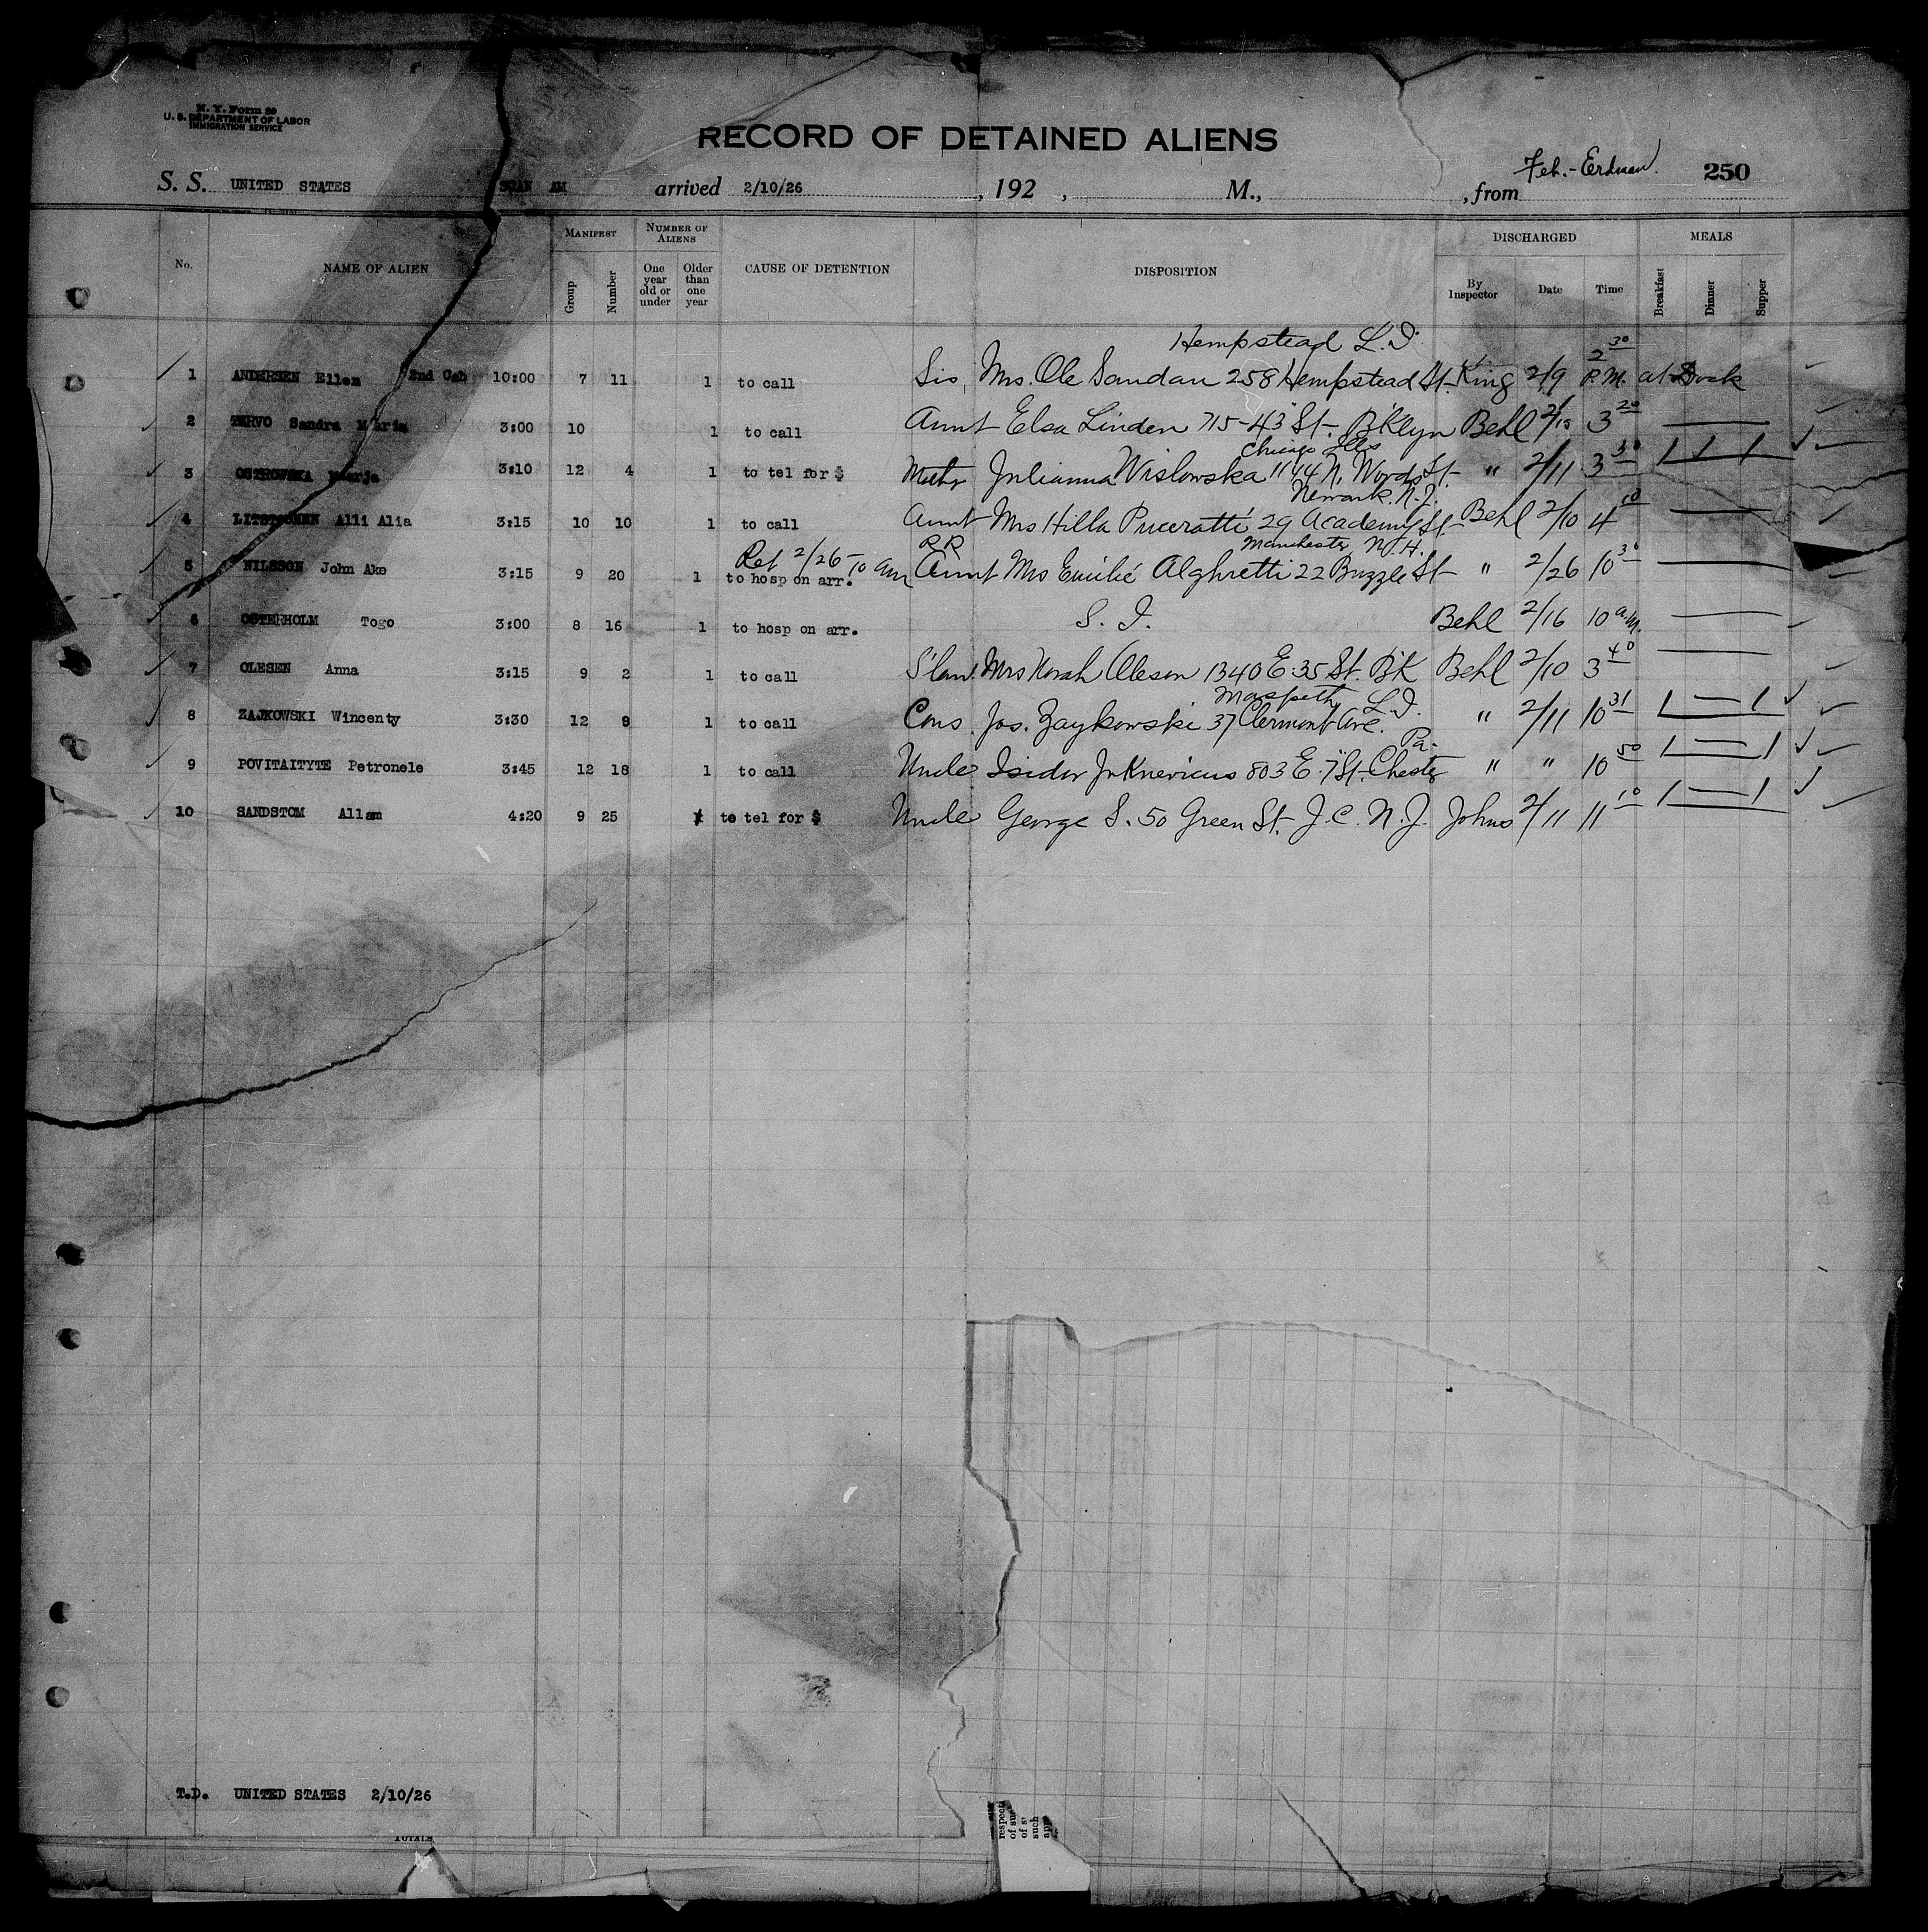 N. Y. Form 89
U. S. DEPARTMENT OF LABOR
IMMIGRATION SERVICE
RECORD OF DETAINED ALIENS
250
Feb.-Erdman
S. S. UNITED STATES SCAN AM arrived 2/10/26 , 192 , M., , from
No. NAME OF ALIEN MANIFEST Group Number NUMBER OF ALIENS One year old or under Older than one year CAUSE OF DETENTION DISPOSITION DISCHARGED By Inspector Date Time MEALS Breakfast Dinner Supper
Hempstead L.I.
1 ANDERSEN Ellen 2nd Cab 10:00 7 11 1 to call Sis, Mrs. Ole Sandau 258 Hempstead St. King 2/9 2 30 P.M. at Dock
2 TERVO Sandra Maria 3:00 10 1 to call Aunt Elsa Linden 715-43 St. B'klyn Behl 2/10 3 20
Chicago Ills
3 OSTROWSKA Marja 3:10 12 4 1 to tel for $ Mother Julianna Wislowska 1114 N. Woods St. " 2/11 3 30
Newark N.J.
4 Alli Alia 3:15 10 10 1 to call Aunt Mrs Hilla 29 Academy St. Behl 2/10 4 10
Ret 2/26 - 10 am RR Manchester N.H.
5 NILSSON John Ake 3:15 9 20 1 to hosp on arr. Aunt Mrs Emilie Alghretti 22 Buzzle St " 2/26 10 30
6 OSTERHOLM Togo 3:00 8 16 1 to hosp on arr. S. I. Behl 2/16 10 a.m.
7 OLESEN Anna 3:15 9 2 1 to call S'law. Mrs Norah Olesen 1340 E. 35 St. B'k Behl 2/10 3 40
Maspeth L.I.
8 ZAJKOWSKI Wincenty 3:30 12 8 1 to call Cous. Jos. Zaykowski 37 Clermont Ave. " 2/11 10 31
Pa.
9 POVITAITYTE Petronele 3:45 12 18 1 to call Uncle Isidor Juknevicius 803 E. 7 St. Chester " " 10 50
10 SANDSTOM Allan 4:20 9 25 1 to tel for $ Uncle George S. 50 Green St. J.C. N.J. Johns 2/11 11 10
T.D. UNITED STATES 2/10/26
TOTALS